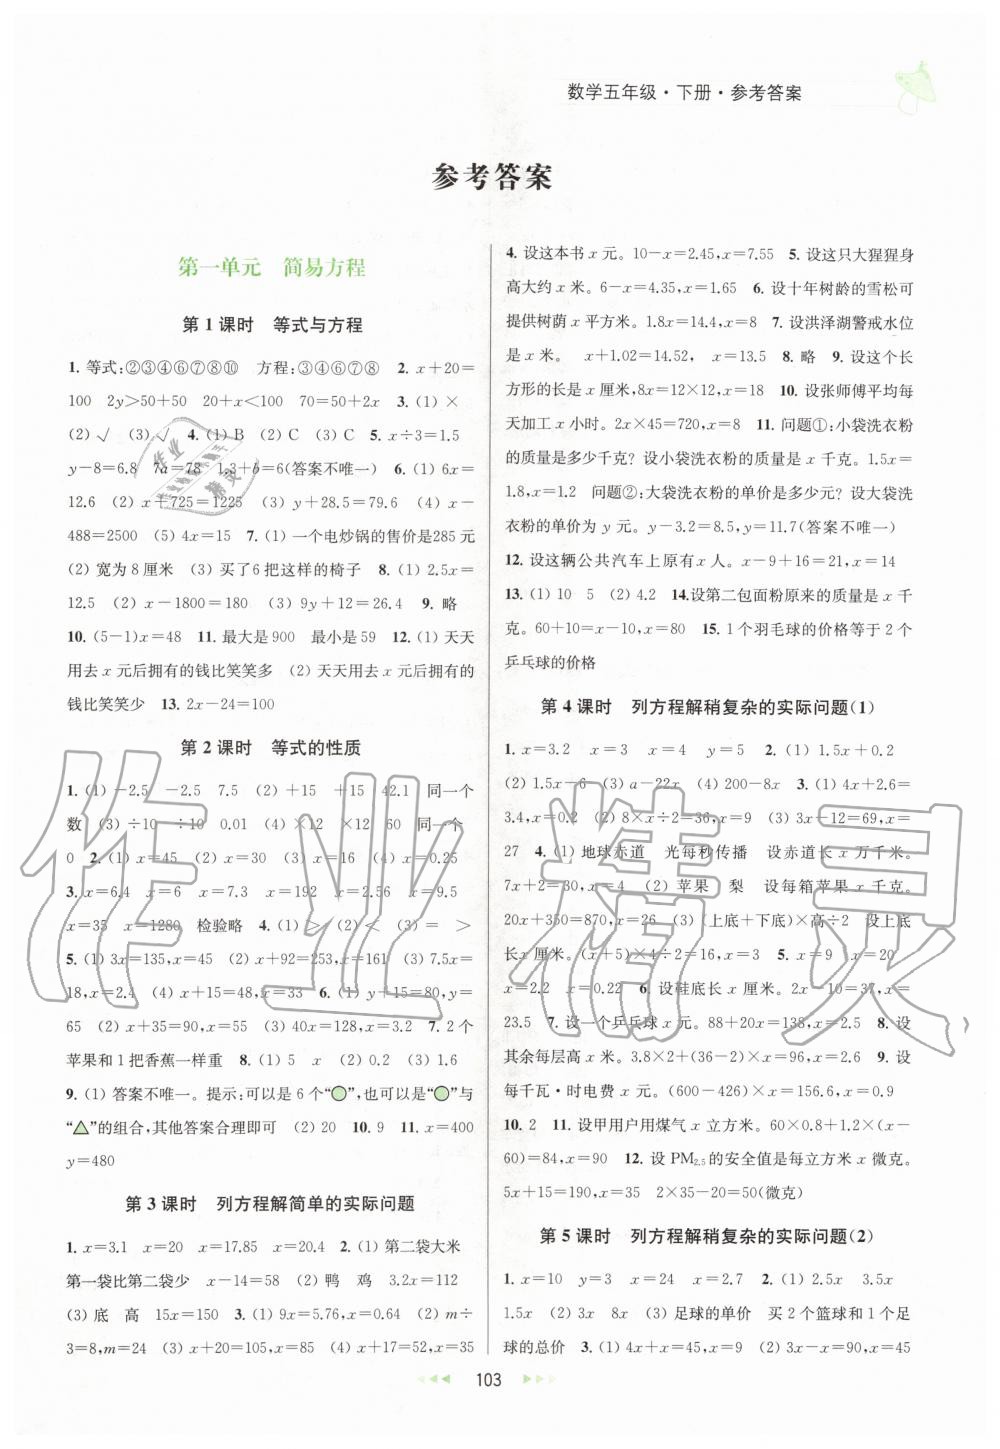 数学五年级·下册·参考答案
参考答案
第一单元 简易方程
第1课时 等式与方程
1. 等式:②③④⑥⑦⑧⑩ 方程:③④⑥⑦⑧ 2. x+20=
100 2y>50+50 20+x<100 70=50+2x 3. (1) ×
(2) √ (3) √ 4. (1) B (2) C (3) C 5. x÷3=1.5
y-8=6.8 7a=78 1.3+b=6(答案不唯一) 6. (1) 6x=
12.6 (2) x+725=1225 (3) y+28.5=79.6 (4) x-
488=2500 (5) 4x=15 7. (1) 一个电炒锅的售价是285元
(2) 宽为8厘米 (3) 买了6把这样的椅子 8. (1) 2.5x=
12.5 (2) x-1800=180 (3) 9y+12=26.4 9. 略
10. (5-1)x=48 11. 最大是900 最小是59 12. (1) 天天
用去 x 元后拥有的钱比笑笑多 (2) 天天用去 x 元后拥有的
钱比笑笑少 13. 2x-24=100
第2课时 等式的性质
1. (1) -2.5 -2.5 7.5 (2) +15 +15 42.1 同一个
数 (3) ÷10 ÷10 0.01 (4) ×12 ×12 60 同一个
0 2. (1) x=45 (2) x=30 (3) x=16 (4) x=0.25
3. x=6.4 x=6 x=7.3 x=192 x=2.56 x=9.5
x=35 x=1280 检验略 4. (1) > (2) < (3) = >
5. (1) 3x=135,x=45 (2) x+92=253,x=161 (3) 7.5x=
18,x=2.4 (4) x+15=48,x=33 6. (1) y+15=80,y=
65 (2) x+35=90,x=55 (3) 40x=128,x=3.2 7. 2个
苹果和1把香蕉一样重 8. (1) 5 x (2) 0.2 (3) 1.6
9. (1) 答案不唯一。提示:可以是6个“○”,也可以是“○”与
“△”的组合,其他答案合理即可 (2) 20 10. 9 11. x=400
y=480
第3课时 列方程解简单的实际问题
1. x=3.1 x=20 x=17.85 x=20.4 2. (1) 第二袋大米
第一袋比第二袋少 x-14=58 (2) 鸭 鸡 3.2x=112
(3) 底 高 15x=150 3. (1) 9x=5.76,x=0.64 (2) m÷
3=8,m=24 (3) x+20=105,x=85 (4) x+17=52,x=35
4. 设这本书 x 元。10-x=2.45,x=7.55 5. 设这只大猩猩身
高大约 x 米。6-x=4.35,x=1.65 6. 设十年树龄的雪松可
提供树荫 x 平方米。1.8x=14.4,x=8 7. 设洪泽湖警戒水位
是 x 米。 x+1.02=14.52,x=13.5 8. 略 9. 设这个长
方形的长是 x 厘米,8x=12×12,x=18 10. 设张师傅平均每
天加工 x 小时。2x×45=720,x=8 11. 问题①:小袋洗衣粉
的质量是多少千克? 设小袋洗衣粉的质量是 x 千克。1.5x=
1.8,x=1.2 问题②:大袋洗衣粉的单价是多少元? 设大袋洗
衣粉的单价为 y 元。y-3.2=8.5,y=11.7(答案不唯一)
12. 设这辆公共汽车上原有 x 人。x-9+16=21,x=14
13. (1) 10 5 (2) 4.2 14.设第二包面粉原来的质量是 x 千
克。60+10=x-10,x=80 15. 1个羽毛球的价格等于2个
乒乓球的价格
第4课时 列方程解稍复杂的实际问题(1)
1. x=3.2 x=3 x=4 y=5 2. (1) 1.5x+0.2
(2) 1.5x-6 (3) a-22x (4) 200-8x 3. (1) 4x+2.6=
3.4,x=0.2 (2) 8×x÷2=36,x=9 (3) 3x-12=69,x=
27 4. (1) 地球赤道 光每秒传播 设赤道长 x 万千米。
7x+2=30,x=4 (2) 苹果 梨 设每箱苹果 x 千克。
20x+350=870,x=26 (3) (上底+下底)×高÷2 设上底
长 x 厘米。(x+5)×4÷2=16,x=3 5. x=9 x=20
x=2.2 x=0.22 6. 设硅底长 x 厘米。2x-10=37,x=
23.5 7. 设一个乒乓球 x 元。88+20x=138,x=2.5 8. 设
其余每层高 x 米。3.8×2+(36-2)×x=96,x=2.6 9. 设
每千瓦·时电费 x 元。(600-426)×x=156.6,x=0.9
10. 2 11. 设甲用户用煤气 x 立方米。60×0.8+1.2×(x-
60)=84,x=90 12. 设 PM2.5的安全值是每立方米 x 微克。
5x+15=190,x=35 2×35-20=50(微克)
第5课时 列方程解稍复杂的实际问题(2)
1. x=10 y=3 x=24 x=2.7 2. (1) 2.5x 3.5x
1.5x (2) 3x 8x (3) 足球的单价 买2个篮球和1个足
球的总价 3. (1) 4x+x=45,x=9 (2) 3x-x=90,x=45
103